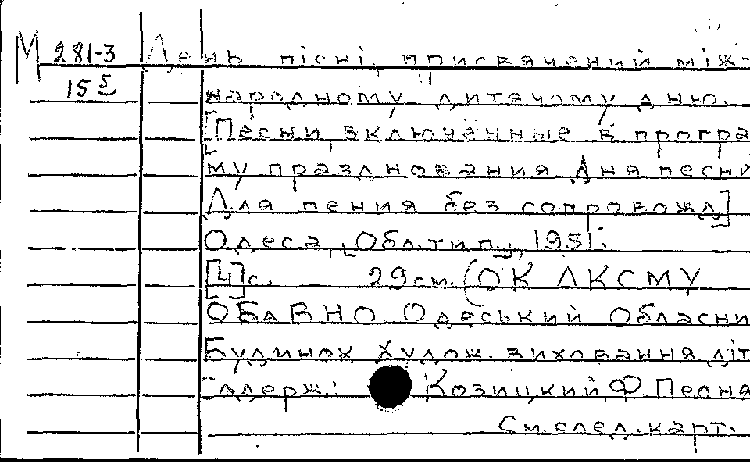 М 281-3 День пісні, присвячений між-
15 5 народному дитячому дню.
[Песни, включённые в програ
му празднования Дня песни
Для пения без сопровожд]
Одеса, "Обл. тип", 1951.
[4] с. 29 см. (ОК ЛКСМУ
ОблВНО Одеський Обласни
Будинок худож. виховання діт
Задерж.: Козицкий, Ф. Песня
См. след. карт.